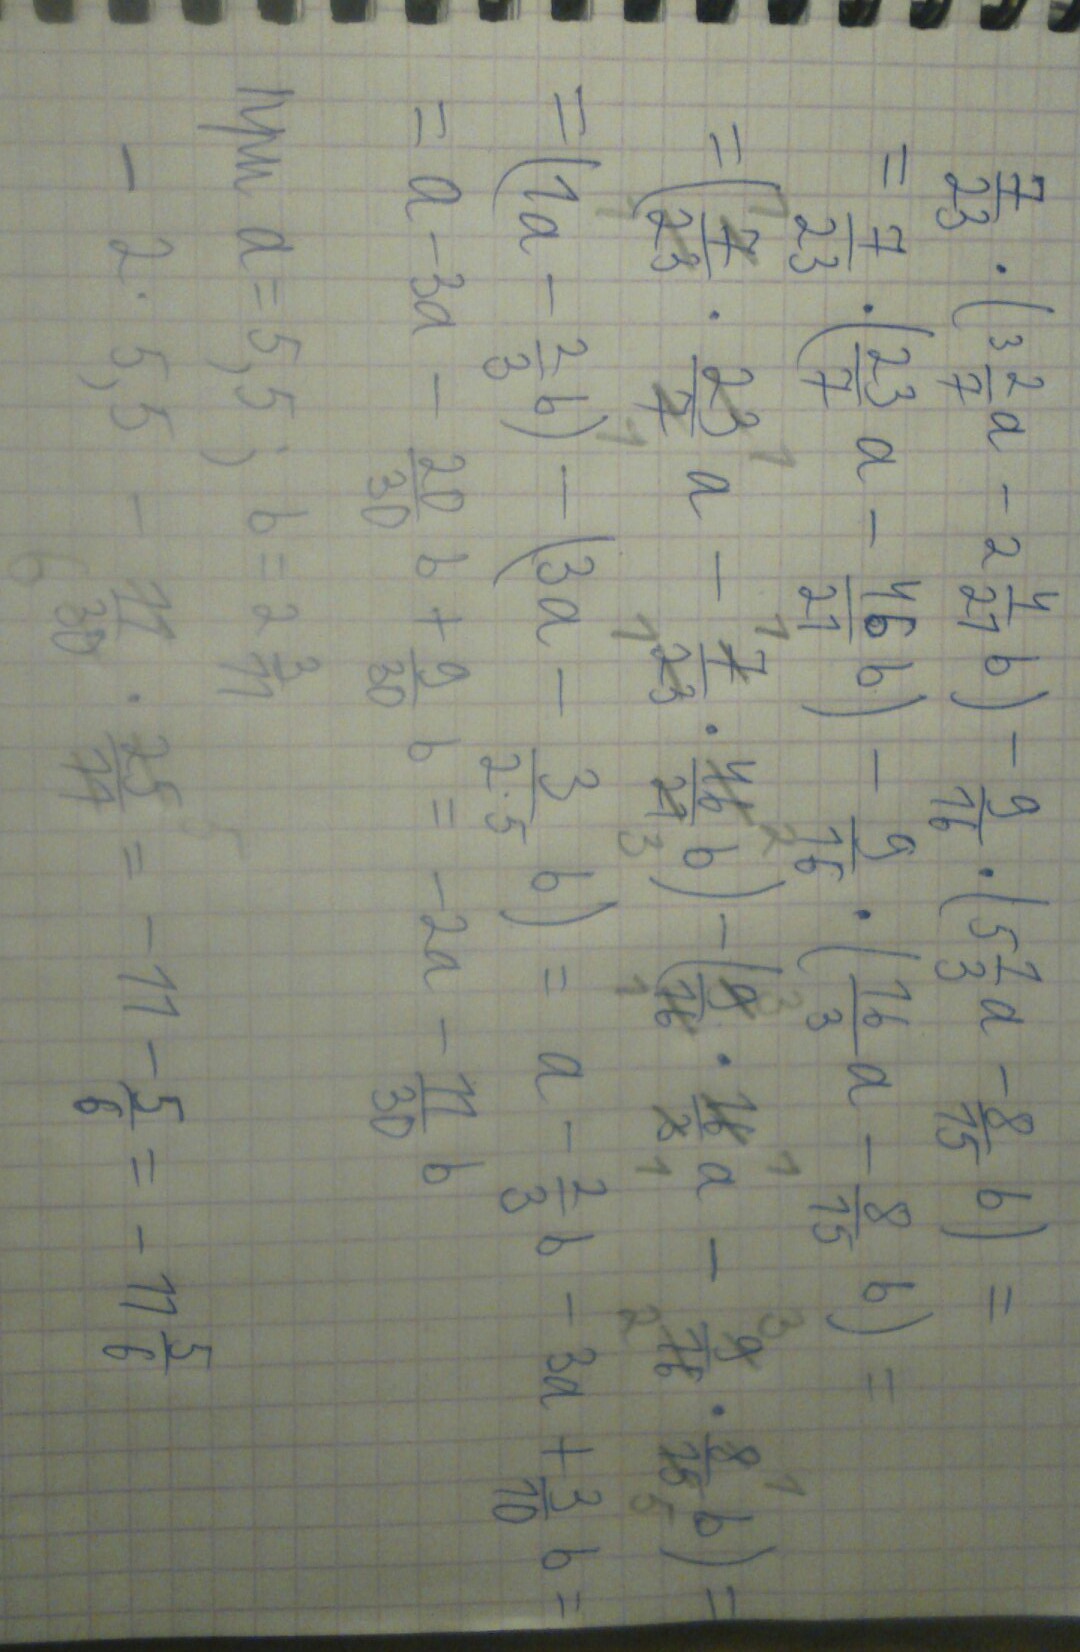 7/23 · (3 2/7 a - 2 4/21 b) - 9/16 · (5 1/3 a - 8/15 b) =
= 7/23 · (23/7 a - 46/21 b) - 9/16 · (16/3 a - 8/15 b) =
= (7/23 · 23/7 a - 7/23 · 46/21 b) - (9/16 · 16/3 a - 9/16 · 8/15 b) =
= (1a - 2/3 b) - (3a - 3/2·5 b) = a - 2/3 b - 3a + 3/10 b =
= a - 3a - 20/30 b + 9/30 b = -2a - 11/30 b
при a = 5,5; b = 2 3/11
- 2 · 5,5 - 11/30 · 25/11 = -11 - 5/6 = -11 5/6